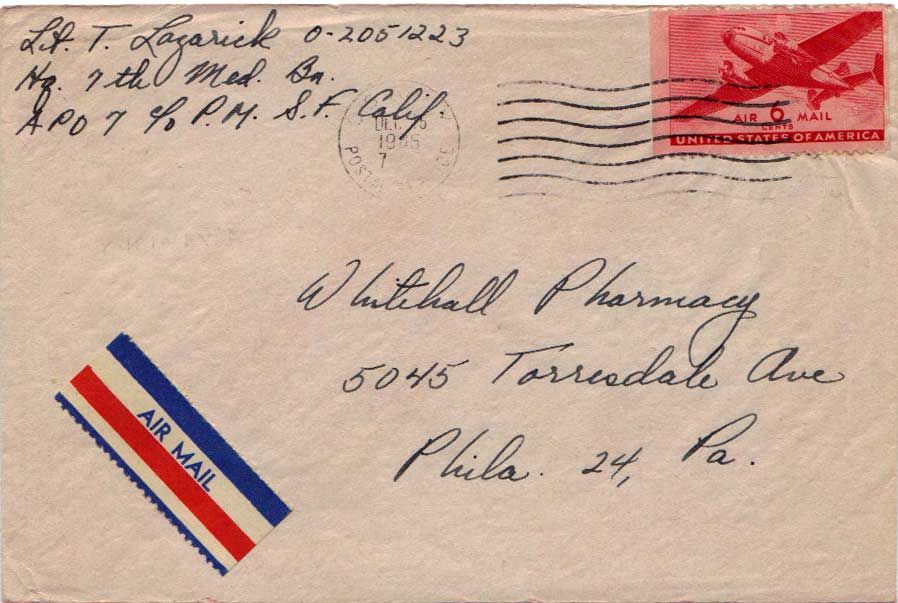 Lt. T. Lazarick O-2051223
Hq. 7th Med. Bn.
APO 7 c/o P.M. S.F. Calif.
DEC
1945
7
AIR 6 MAIL
CENTS
UNITED STATES OF AMERICA
Whitehall Pharmacy
5045 Torresdale Ave
Phila. 24, Pa.
AIR MAIL